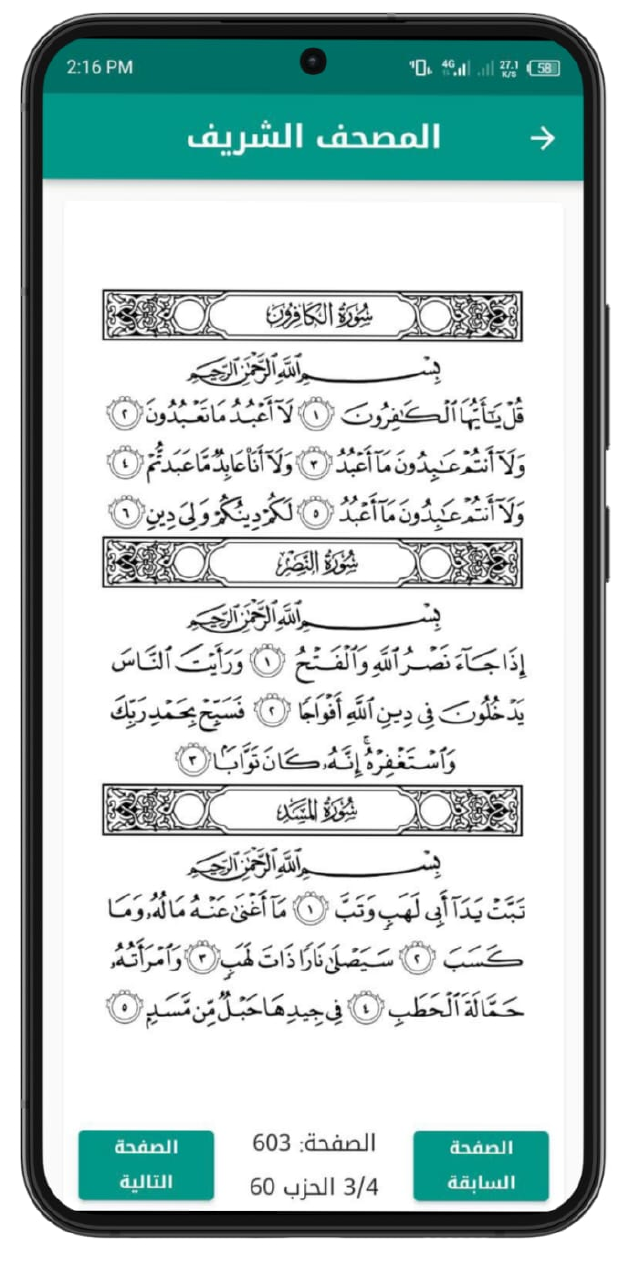 2:16 PM 4G 27.1 K/S 58
المصحف الشريف
سُورَةُ الكَافِرُونَ
بِسْمِ ٱللَّهِ ٱلرَّحْمَٰنِ ٱلرَّحِيمِ
قُلْ يَٰٓأَيُّهَا ٱلْكَٰفِرُونَ ١ لَآ أَعْبُدُ مَا تَعْبُدُونَ ٢
وَلَآ أَنتُمْ عَٰبِدُونَ مَآ أَعْبُدُ ٣ وَلَآ أَنَا۠ عَابِدٌ مَّا عَبَدتُّمْ ٤
وَلَآ أَنتُمْ عَٰبِدُونَ مَآ أَعْبُدُ ٥ لَكُمْ دِينُكُمْ وَلِىَ دِينِ ٦
سُورَةُ النَّصْرِ
بِسْمِ ٱللَّهِ ٱلرَّحْمَٰنِ ٱلرَّحِيمِ
إِذَا جَآءَ نَصْرُ ٱللَّهِ وَٱلْفَتْحُ ١ وَرَأَيْتَ ٱلنَّاسَ
يَدْخُلُونَ فِى دِينِ ٱللَّهِ أَفْوَاجًا ٢ فَسَبِّحْ بِحَمْدِ رَبِّكَ
وَٱسْتَغْفِرْهُ ۚ إِنَّهُۥ كَانَ تَوَّابًۢا ٣
سُورَةُ المَسَدِ
بِسْمِ ٱللَّهِ ٱلرَّحْمَٰنِ ٱلرَّحِيمِ
تَبَّتْ يَدَآ أَبِى لَهَبٍ وَتَبَّ ١ مَآ أَغْنَىٰ عَنْهُ مَالُهُۥ وَمَا
كَسَبَ ٢ سَيَصْلَىٰ نَارًا ذَاتَ لَهَبٍ ٣ وَٱمْرَأَتُهُۥ
حَمَّالَةَ ٱلْحَطَبِ ٤ فِى جِيدِهَا حَبْلٌ مِّن مَّسَدٍۭ ٥
الصفحة السابقة
الصفحة: 603
3/4 الحزب 60
الصفحة التالية